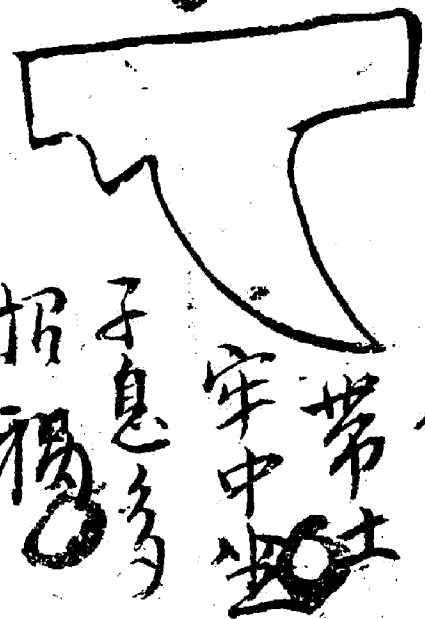 帶土
牢中坐
子息多
招禍